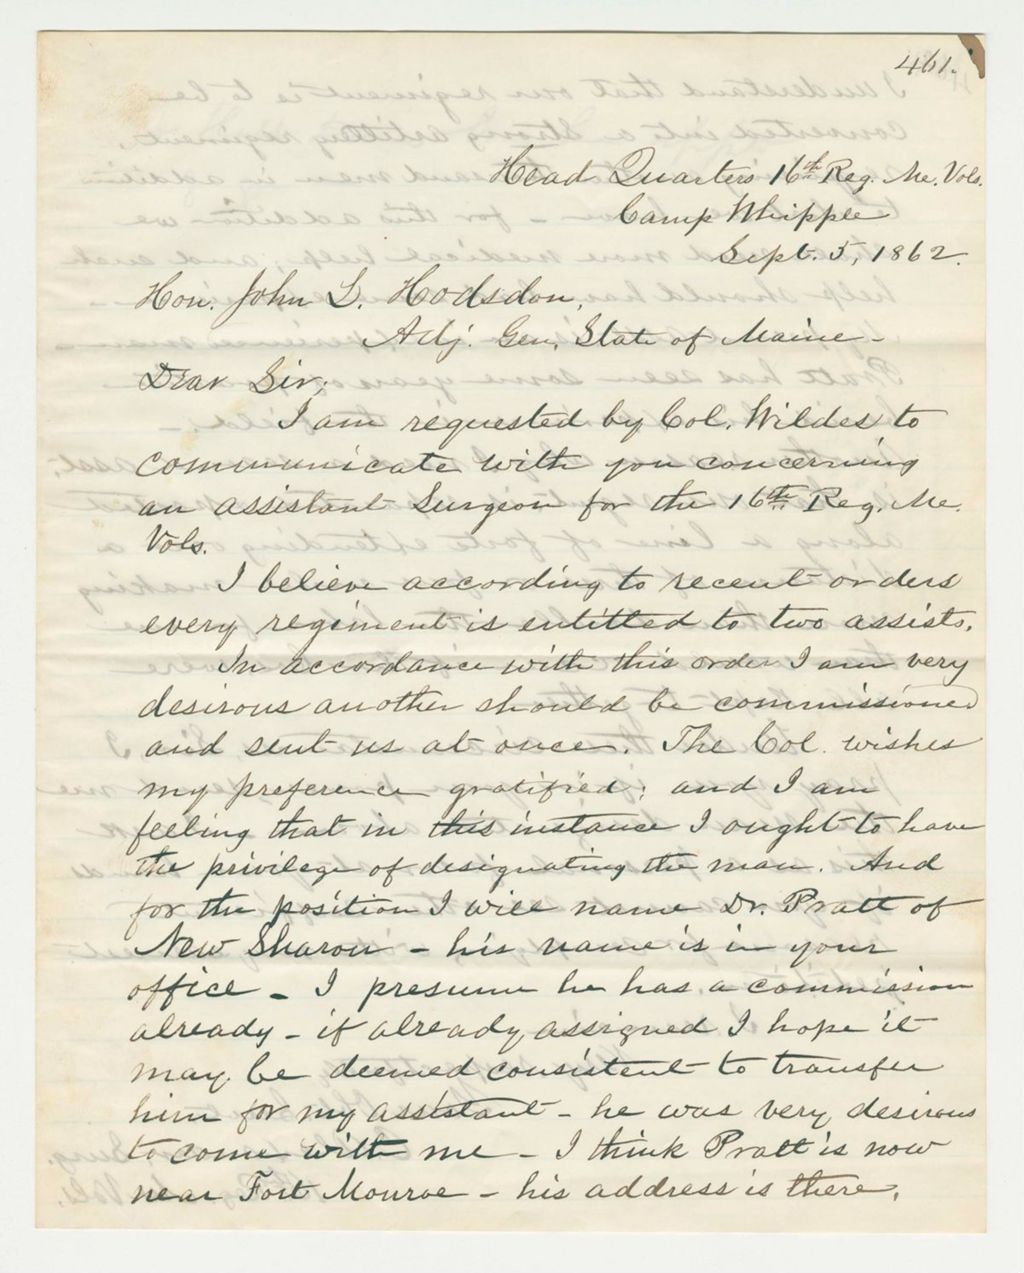 461.
Head Quarters 16th Reg. Me. Vols.
Camp Whipple
Sept. 5, 1862.
Hon. John L. Hodsdon,
Adj. Gen. State of Maine -
Dear Sir;
I am requested by Col. Wildes to
communicate with you concerning
an assistant Surgeon for the 16th Reg. Me.
Vols.
I believe according to recent orders
every regiment is entitled to two assists.
In accordance with this order I am very
desirous another should be commissioned
and sent us at once. The Col. wishes
my preference gratified; and I am
feeling that in this instance I ought to have
the privilege of designating the man. And
for the position I will name Dr. Pratt of
New Sharon - his name is in your
office - I presume he has a commission
already - if already assigned I hope it
may be deemed consistent to transfer
him for my assistant - he was very desirous
to come with me - I think Pratt is now
near Fort Monroe - his address is there.